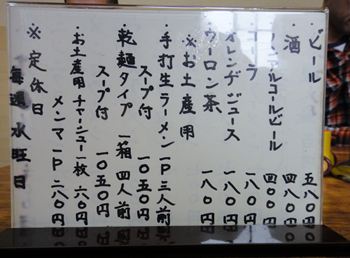 ・ビール 五八〇円
・酒 四八〇円
・ノンアルコールビール 四〇〇円
・コーラ 一八〇円
・オレンヂジュース 一八〇円
・ウーロン茶 一八〇円
※お土産用
・手打生ラーメン一P三人前
スープ付 一〇五〇円
・乾麺タイプ 一箱 四人前
スープ付 一〇五〇円
・お土産用 チャーシュー一枚 六〇円
メンマ一P 二八〇円
※定休日
毎週水曜日